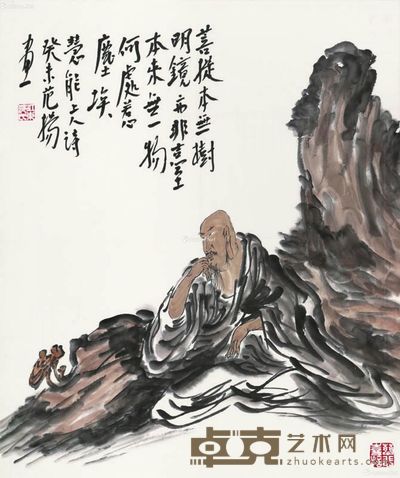 菩提本無樹
明鏡亦非臺
本来無一物
何處惹
塵埃
慧能上人詩
癸未范揚
画
卓克艺术网
zhuokearts.com